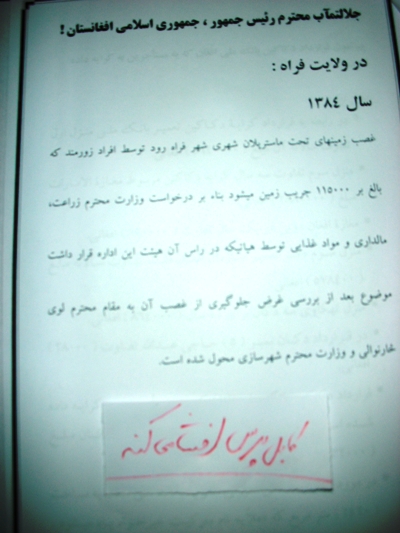 جلالتمآب محترم رئیس جمهور ، جمهوری اسلامی افغانستان !
در ولایت فراه :
سال ١٣٨٤
غصب زمینهای تحت ماسترپلان شهری شهر فراه رود توسط افراد زورمند که
بالغ بر ١١٥٠٠٠ جریب زمین میشود بناء بر درخواست وزارت محترم زراعت،
مالداری و مواد غذایی توسط هیاتیکه در راس آن هیئت این اداره قرار داشت
موضوع بعد از بررسی غرض جلوگیری از غصب آن به مقام محترم لوی
څارنوالی و وزارت محترم شهرسازی محول شده است.
کابل پرس افشا می کند